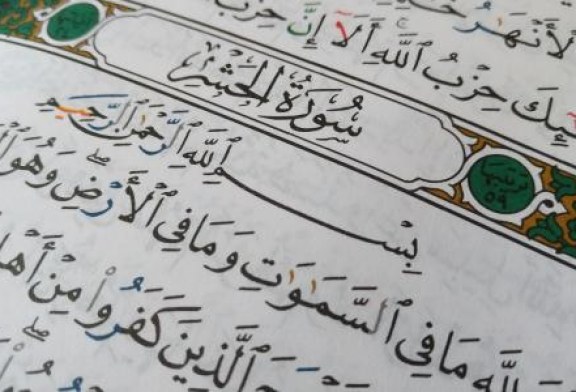 ٱلۡأَنۡهَـٰرُ
ئِكَ حِزۡبُ ٱللَّهِۚ أَلَآ إِنَّ حِزۡبَ
سُورَةُ الحَشۡرِ
ترتيبها ٥٩
بِسۡمِ ٱللَّهِ ٱلرَّحۡمَٰنِ ٱلرَّحِيمِ
لِلَّهِ مَا فِي ٱلسَّمَٰوَٰتِ وَمَا فِي ٱلۡأَرۡضِۖ وَهُوَ
ٱلَّذِينَ كَفَرُواْ مِنۡ أَهۡلِ